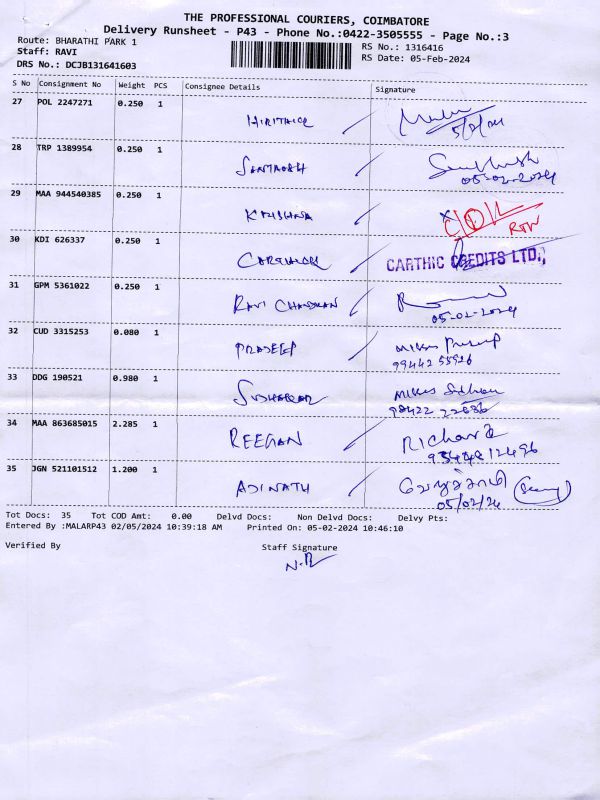 THE PROFESSIONAL COURIERS, COIMBATORE
Delivery Runsheet - P43 - Phone No.:0422-3505555 - Page No.:3
Route: BHARATHI PARK 1
RS No.: 1316416
Staff: RAVI
RS Date: 05-Feb-2024
DRS No.: DCJB131641603
S No Consignment No Weight PCS Consignee Details Signature
27 POL 2247271 0.250 1 HIRITHICK
5/2/24
28 TRP 1389954 0.250 1 SANTHOSH Santhosh
05-02-2024
29 MAA 944540385 0.250 1 KRISHNA
RTN
30 KDI 626337 0.250 1 CARTHICK CARTHIC CREDITS LTD.,
31 GPM 5361022 0.250 1 RAVI CHANDRAN
05-02-2024
32 CUD 3315253 0.080 1 PRADEEP
99442 55926
33 DDG 190521 0.980 1 SUDHAKAR
98422 22686
34 MAA 863685015 2.285 1 REEGAN Richard
9344812496
35 JGN 521101512 1.200 1 ADINATH
05/02/24
Tot Docs: 35 Tot COD Amt: 0.00 Delvd Docs: Non Delvd Docs: Delvy Pts:
Entered By :MALARP43 02/05/2024 10:39:18 AM Printed On: 05-02-2024 10:46:10
Verified By Staff Signature